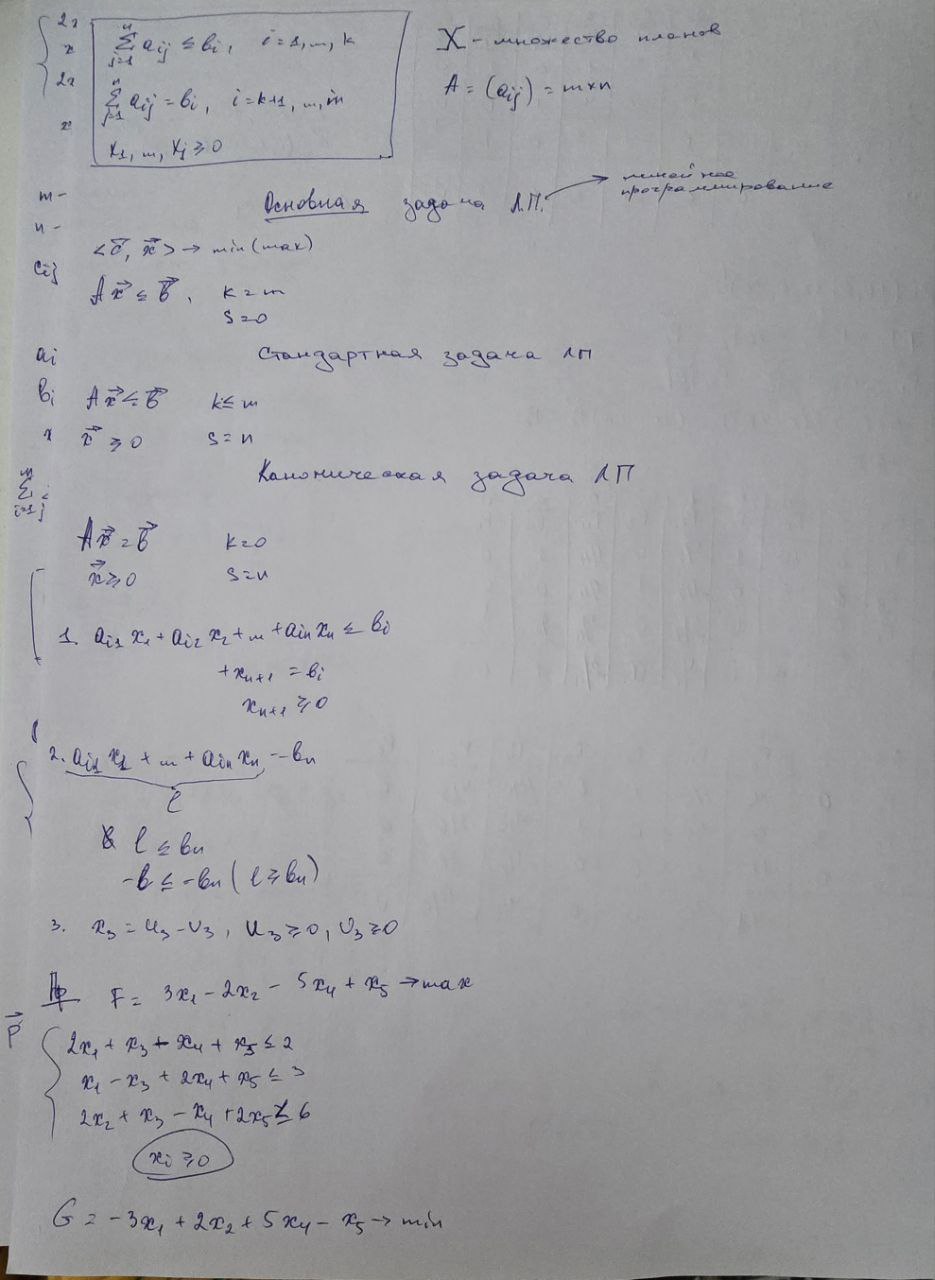 2x
x
2x
x
n Σ j=1 aij ≤ bi, i=1, ..., k
n Σ j=1 aij = bi, i=k+1, ..., m
x1, ..., xj ≥ 0
X - множество планов
A = (aij) = m×n
Основная задача Л.П. → линейное
программирование
m -
n -
cij
<c⃗, x⃗> → min (max)
Ax⃗ ≤ b⃗, k = m
s = 0
ai
Стандартная задача ЛП
bi
Ax⃗ ≤ b⃗ k ≤ m
x
x⃗ ≥ 0 s = n
Каноническая задача ЛП
Ax⃗ = b⃗ k = 0
x⃗ ≥ 0 s = n
1. ai1 x1 + ai2 x2 + ... + ain xn ≤ bi
+ xn+1 = bi
xn+1 ≥ 0
2. ai1 x1 + ... + ain xn = bn
l
l ≤ bn
-l ≤ -bn (l ≥ bn)
3. x3 = u3 - v3, u3 ≥ 0, v3 ≥ 0
Пр F = 3x1 - 2x2 - 5x4 + x5 → max
P⃗
2x1 + x3 + x4 + x5 ≤ 2
x1 - x3 + 2x4 + x5 ≤ 3
2x2 + x3 - x4 + 2x5 ≤ 6
xi ≥ 0
G = -3x1 + 2x2 + 5x4 - x5 → min